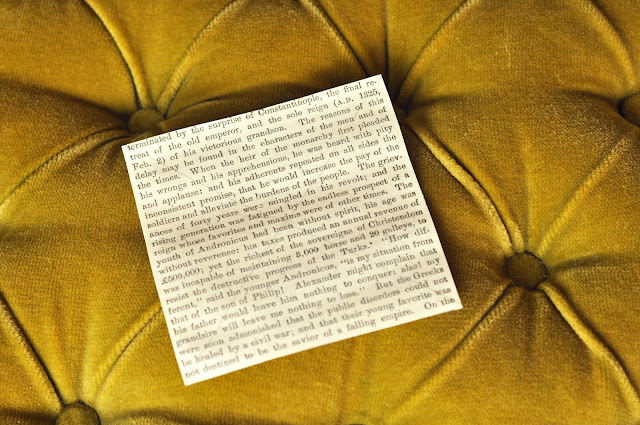 terminated by the surprise of Constantinople, the final re-
treat of the old emperor, and the sole reign (A.D. 1325,
Feb. 2) of his victorious grandson. The reasons of this
delay may be found in the characters of the men and of
the times. When the heir of the monarchy first pleaded
his wrongs and his apprehensions, he was heard with pity
and applause: and his adherents repeated on all sides the
inconsistent promise, that he would increase the pay of the
soldiers and alleviate the burdens of the people. The griev-
ances of forty years were mingled in his revolt; and the
rising generation was fatigued by the endless prospect of a
reign whose favorites and maxims were of other times. The
youth of Andronicus had been without spirit, his age was
without reverence: his taxes produced an annual revenue of
£500,000; yet the richest of the sovereigns of Christendom
was incapable of maintaining 3,000 horse and 20 galleys, to
resist the destructive progress of the Turks.* "How dif-
ferent," said the younger Andronicus, "is my situation from
that of the son of Philip! Alexander might complain that
his father would leave him nothing to conquer: alas! my
grandsire will leave me nothing to lose." But the Greeks
were soon admonished that the public disorders could not
be healed by a civil war; and that their young favorite was
not destined to be the savior of a falling empire. On the